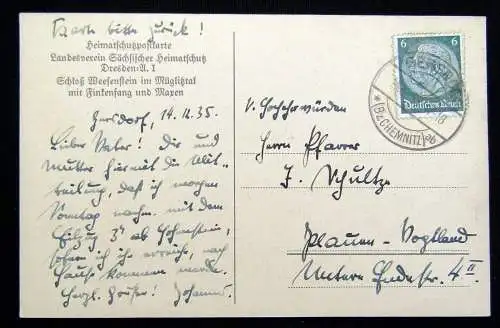 Karte bitte zurück!
Heimatschutzpostkarte
Landesverein Sächsischer Heimatschutz
Dresden-A. 1
Schloß Weesenstein im Müglitztal
mit Finkenfang und Maxen
Gersdorf, 14.11.35.
Lieber Vater! Dir und
Mutter hiermit die Mit-
teilung, daß ich morgen
Sonntag nachm. mit dem
Eilzug 3⁴ ab Hohenstein,
sofern ich ihn erreich, nach
Hause kommen werde.
Herzl. Grüße! Johannes.
6 6
Deutsches Reich
(Bz. CHEMNITZ)
S. Hochehrwürden
Herrn Pfarrer
J. Schultze
Plauen-Vogtland
Untere Endestr. 4 II